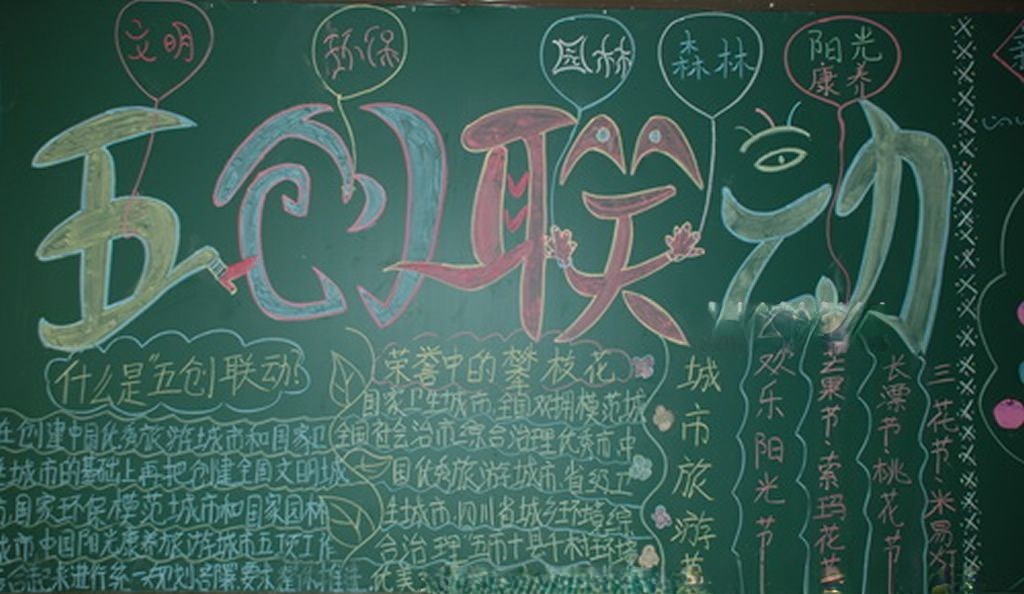 文明
环保
园林
森林
阳光
康养
五创联动
什么是"五创联动?
在创建中国优秀旅游城市和国家卫
生城市的基础上再把创建全国文明城
市国家环保模范城市和国家园林
城市中国阳光康养旅游城市五项工作
合起来进行统一规划部署要求
荣誉中的攀枝花
国家卫生城市,全国双拥模范城
全国社会治市综合治理优秀市中
国优秀旅游城市省级卫
生城市,四川省城乡环境综
合治理"五市十县十村环境
优美
城市旅游节
欢乐阳光节
芒果节·索玛花节
长漂节·桃花节
三花节·米易灯